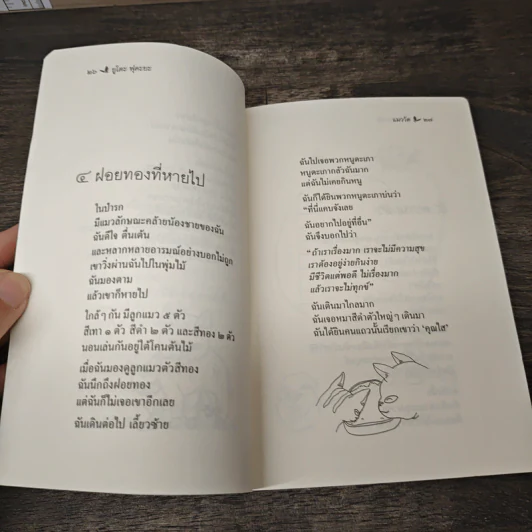 ๒๖ ยูโตะ ฟุคะยะ
๔ ฝอยทองที่หายไป
ในป่ารก
มีแมวลักษณะคล้ายน้องชายของฉัน
ฉันดีใจ ตื่นเต้น
และหลากหลายอารมณ์อย่างบอกไม่ถูก
เขาวิ่งผ่านฉันไปในพุ่มไม้
ฉันมองตาม
แล้วเขาก็หายไป
ใกล้ๆ กัน มีลูกแมว ๕ ตัว
สีเทา ๑ ตัว สีดำ ๒ ตัว และสีทอง ๒ ตัว
นอนเล่นกันอยู่ใต้โคนต้นไม้
เมื่อฉันมองดูลูกแมวตัวสีทอง
ฉันนึกถึงฝอยทอง
แต่ฉันก็ไม่เจอเขาอีกเลย
ฉันเดินต่อไป เลี้ยวซ้าย
แมววัด ๒๗
ฉันไปเจอพวกหนูตะเภา
หนูตะเภากลัวฉันมาก
แต่ฉันไม่เคยกินหนู
ฉันก็ได้ยินพวกหนูตะเภาบ่นว่า
“ที่นี่แคบจังเลย
ฉันอยากไปอยู่ที่อื่น”
ฉันจึงบอกไปว่า
“ถ้าเราเรื่องมาก เราจะไม่มีความสุข
เราต้องอยู่ง่ายกินง่าย
มีชีวิตแต่พอดี ไม่เรื่องมาก
แล้วเราจะไม่ทุกข์”
ฉันเดินมาไกลมาก
ฉันเจอหมาสีดำตัวใหญ่ๆ เดินมา
ฉันได้ยินคนแถวนั้นเรียกเขาว่า ‘คุณใส่’